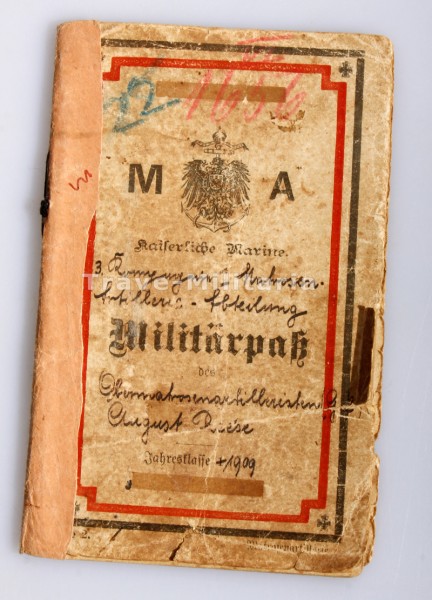 1656
M A
Kaiserliche Marine.
3. Kompagnie Matrosen-
Artillerie-Abteilung
Militärpaß
des
Obermatrosenartilleristen
August Reese
Jahresklasse 1909